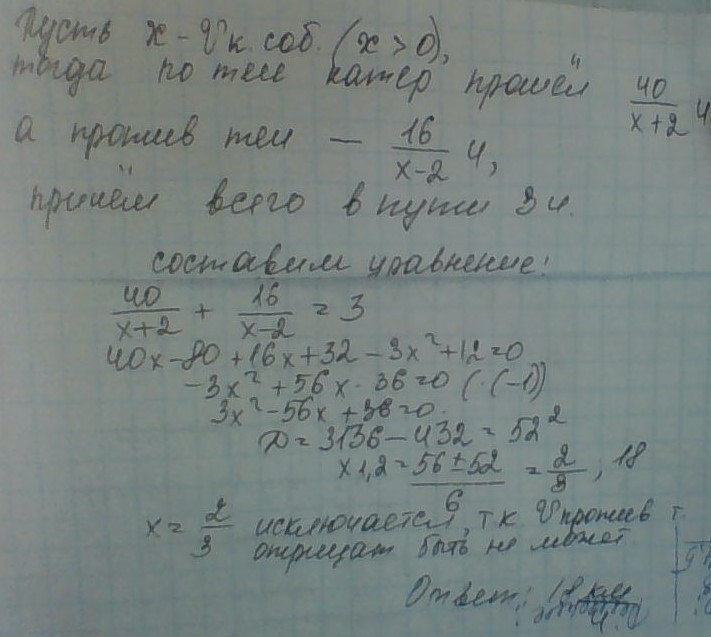 Пусть x - V к. соб. (x > 0),
тогда по теч катер прошёл 40/(x+2) ч
а против теч — 16/(x-2) ч,
причём всего в пути 3 ч.
составим уравнение:
40/(x+2) + 16/(x-2) = 3
40x-80+16x+32-3x²+12=0
-3x²+56x-36=0 (·(-1))
3x²-56x+36=0.
D=3136-432=52²
x1,2=(56±52)/6=2/3, 18
x=2/3 исключается, т к V против т.
отрицат быть не может
Ответ: 18 км